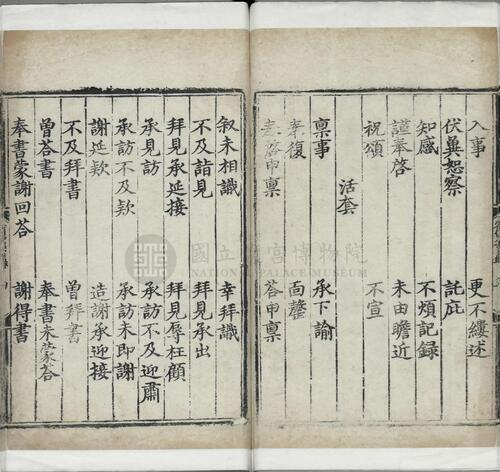 入事　更不縷述
伏冀恕察　託庇
知感　不煩記録
謹奉啓　未由瞻近
祝頌　不宣
活套
稟事　承下諭
奉復　面罄
答申稟
叙未相識　幸拜識
不及詣見　拜見承出
拜見承延接　拜見辱枉顧
承見訪　承訪不及迎肅
承訪不及欵　承訪未即謝
謝延欵　造謝承迎接
不及拜書　曾拜書
曾荅書　奉書未蒙荅
奉書蒙謝回荅　謝得書
國立 宮博物院
NATIONAL PALACE MUSEUM